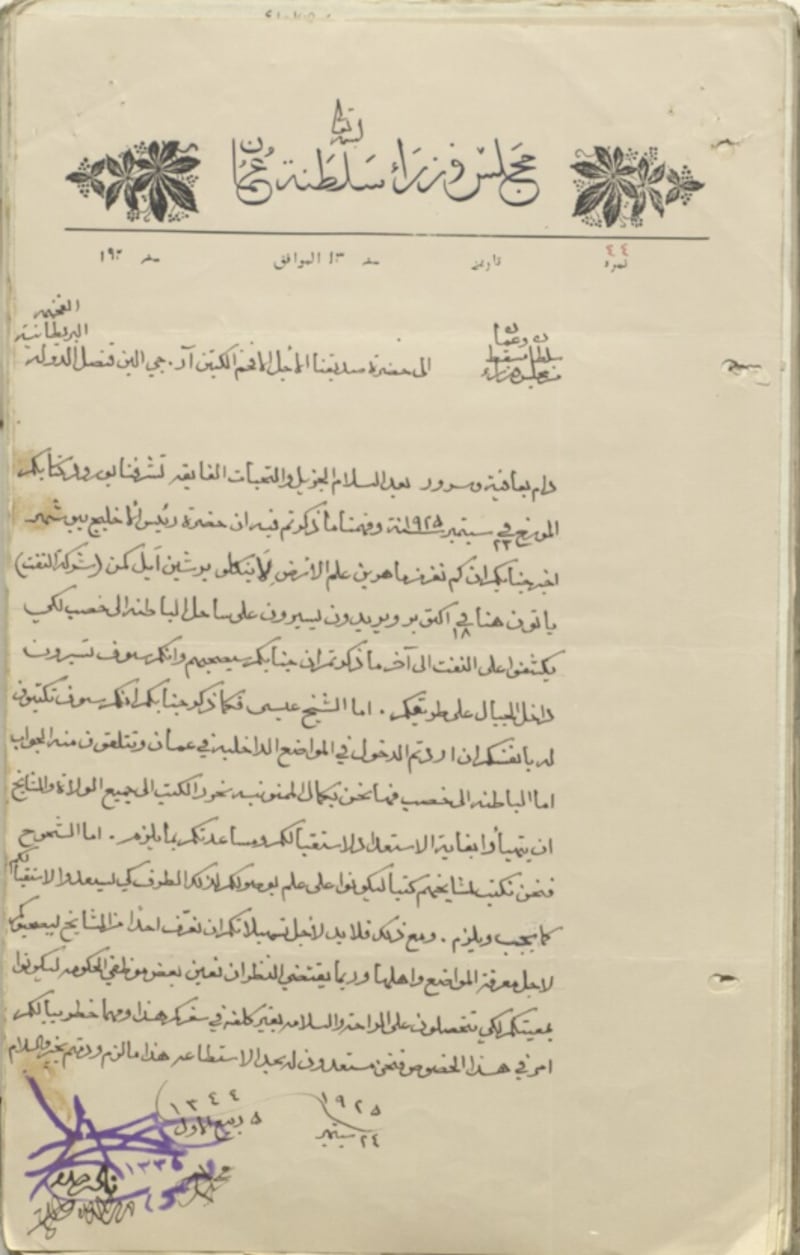 مجلس وزراء سلطنة عمان
نمره ٤٤ تاريخ سنه ١٣ الموافق سنه ١٩٢
من مجلس وزراء سلطان مسقط وعمان
الى حضرة صديقنا الأجل الافخم الكبتن آر. جي البن قنصل الدولة البريطانية الفخيمه
دام بعافية وسرور بعد السلام الجزيل والتحيات الفايقه تشرفنا بورود كتابكم
المورخ في ٢٣ سبتمبر سنة ١٩٢٥ وفهمنا ما ذكرتم فيه ان حضرة رئيس الخليج ببوشهر
اخبر جنابكم ان كم نفر من ماهرين علم الارض برشين آيل كمن (شركة النفت)
ياتون هنا في ١٨ اكتوبر ويريدون يسيرون على ساحل الباطنه الى خصب لكي
يكشفوا على النفت الى آخر ما ذكرتم ان جنابكم سيصحبهم وانكم سوف تسيرون
داخل الجبال على طريقكم. اما الشيخ عيسى فكما ذكر جنابكم انكم سوف تكتبون
له بانفسكم ان اردتم الدخول في المواضع الداخلية في عمان وتتلقون منه الجواب
اما الباطنه الى خصب فها نحن بكمال الممنونيه نحرر الكتب الى جميع الولاة والمشايخ
ان يتهيأوا بغاية الاستعداد لاستقبالكم ومساعدتكم بما يلزم. اما الشحوح
فنحن نكتب لمشايخهم كتبا ليكونوا على علم بوصولكم لذلك الطرف كي يستعدوا لاستقبالكم
كما يجب ويلزم. ومع ذلك فلا بد لاجل تسهيلاتكم ان نعرف احدا من المشايخ ليصحبوكم
لاجل معرفة المواضع واهلها وربما يقتضي النظر ان نعين بعض موظفي الحكومه ليكونوا
بمعيتكم لكي تتحصلون على الراحة والسلامه بغير كلفة في سفركم هذا ومهما خطر ببالكم
امر في هذا الخصوص فنحن مستعدون له بحد الاستطاعه هذا ما لزم ودمتم بخير والسلام
٢٤ سبتمبر ١٩٢٥
٥ ربيع الاول ١٣٤٤